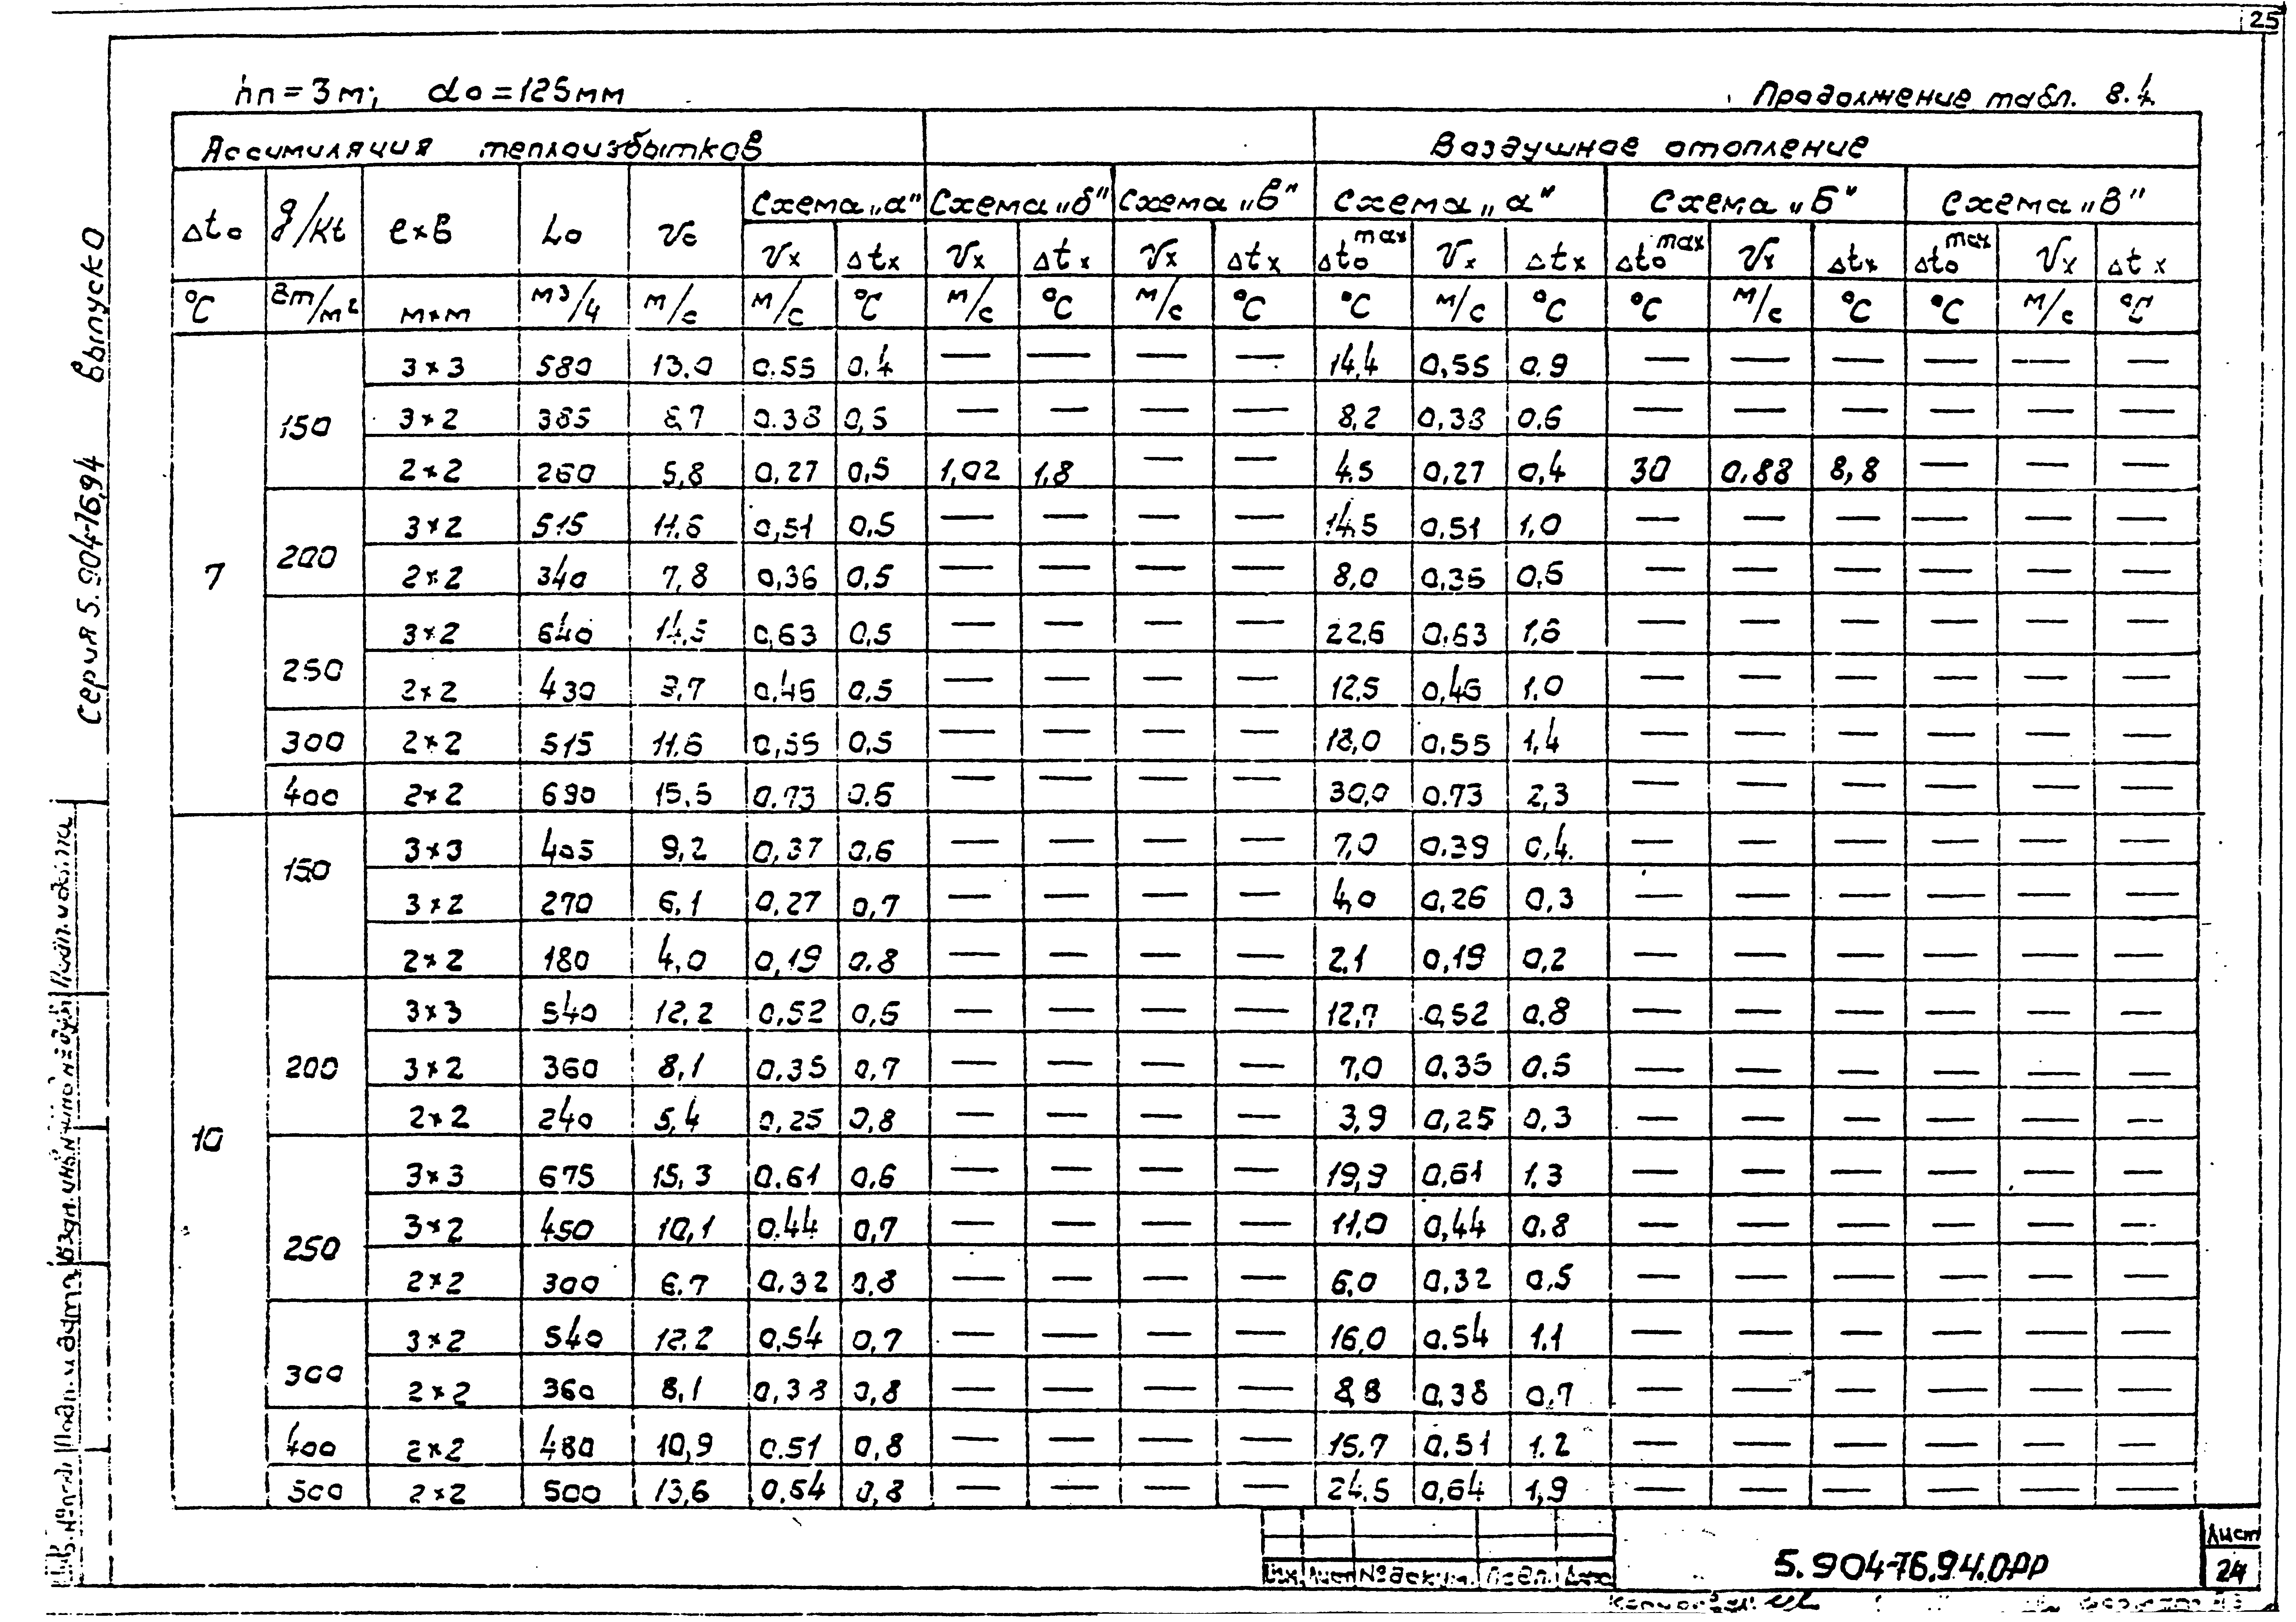 25
hп = 3 м; do = 125 мм
Продолжение табл. 8.4
Ассимиляция теплоизбытков Воздушное отопление
Δto g/Kt ℓ×в Lo Vo Схема „а" Схема „б" Схема „в" Схема „а" Схема „б" Схема „в"
Vx Δtx Vx Δtx Vx Δtx Δto max Vx Δtx Δto max Vx Δtx Δto max Vx Δtx
°C Вт/м² м×м м³/ч м/с м/с °C м/с °C м/с °C °C м/с °C °C м/с °C °C м/с °C
7 150 3×3 580 13.0 0.55 0,4 — — — — 14,4 0,55 0.9 — — — — — —
3×2 385 8,7 0.38 0,5 — — — — 8,2 0,38 0.6 — — — — — —
2×2 260 5,8 0,27 0,5 1,02 1,8 — — 4.5 0,27 0,4 30 0,88 8,8 — — —
200 3×2 515 11.6 0,51 0,5 — — — — 14.5 0,51 1,0 — — — — — —
2×2 340 7,8 0,36 0,5 — — — — 8,0 0,36 0,6 — — — — — —
250 3×2 640 14,5 0,63 0,5 — — — — 22,6 0,63 1,6 — — — — — —
2×2 430 9,7 0,46 0,5 — — — — 12,5 0,46 1.0 — — — — — —
300 2×2 515 11.6 0,55 0,5 — — — — 18,0 0.55 1,4 — — — — — —
400 2×2 690 15,5 0.73 0.6 — — — — 30,0 0.73 2,3 — — — — — —
10 150 3×3 405 9,2 0,37 0,6 — — — — 7,0 0.39 0,4 — — — — — —
3×2 270 6,1 0,27 0,7 — — — — 4,0 0,26 0,3 — — — — — —
2×2 180 4,0 0,19 0.8 — — — — 2,1 0,19 0,2 — — — — — —
200 3×3 540 12,2 0,52 0,6 — — — — 12,7 0,52 0,8 — — — — — —
3×2 360 8,1 0.35 0,7 — — — — 7,0 0.35 0.5 — — — — — —
2×2 240 5,4 0,25 0,8 — — — — 3,9 0,25 0,3 — — — — — —
250 3×3 675 15,3 0.61 0,6 — — — — 19,9 0,61 1.3 — — — — — —
3×2 450 10,1 0.44 0,7 — — — — 11,0 0,44 0,8 — — — — — —
2×2 300 6.7 0,32 0,8 — — — — 6,0 0,32 0,5 — — — — — —
300 3×2 540 12,2 0,54 0,7 — — — — 16,0 0.54 1.1 — — — — — —
2×2 360 8,1 0,38 0,8 — — — — 8,8 0,38 0,7 — — — — — —
400 2×2 480 10,9 0.51 0,8 — — — — 15.7 0.51 1.2 — — — — — —
500 2×2 500 13,6 0.64 0,8 — — — — 24.5 0,64 1,9 — — — — — —
Серия 5.904-76.94 выпуск 0
Подп. и дата Взам. инв. №
Лист № докум. Подп. Дата
5.904-76.94.0-РР
Лист
24
Копировал